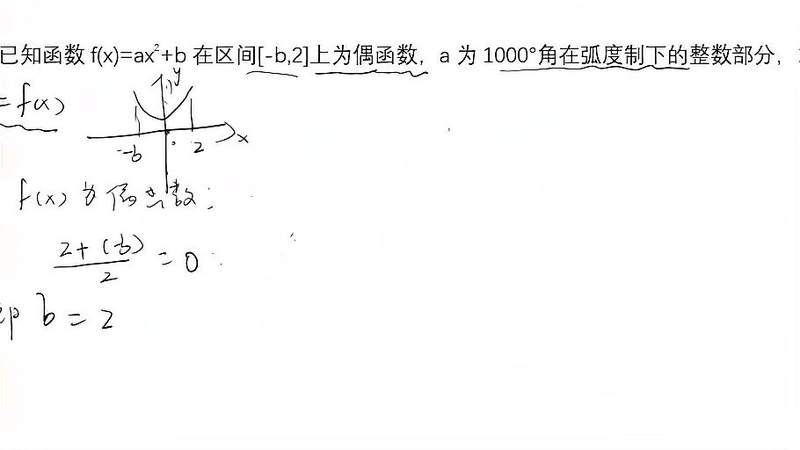 已知函数 f(x)=ax²+b 在区间[-b,2]上为偶函数，a 为 1000°角在弧度制下的整数部分，
=f(x)
y
-b 0 2 x
f(x) 为偶函数：
2+(-b)/2 = 0
即 b = 2